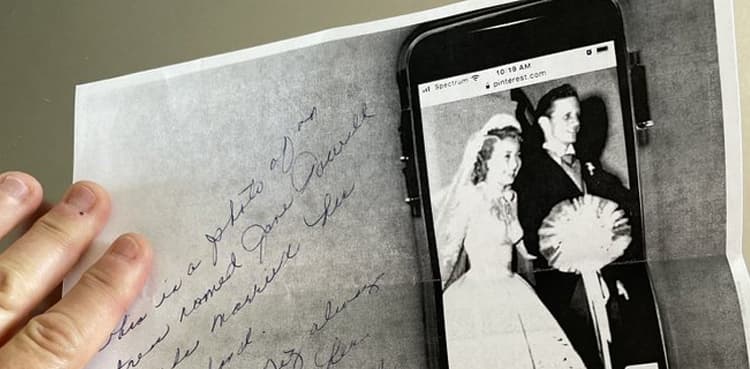 Spectrum
10:19 AM
pinterest.com
This is a photo of an
tress named Jane Powell
she married her
always
her